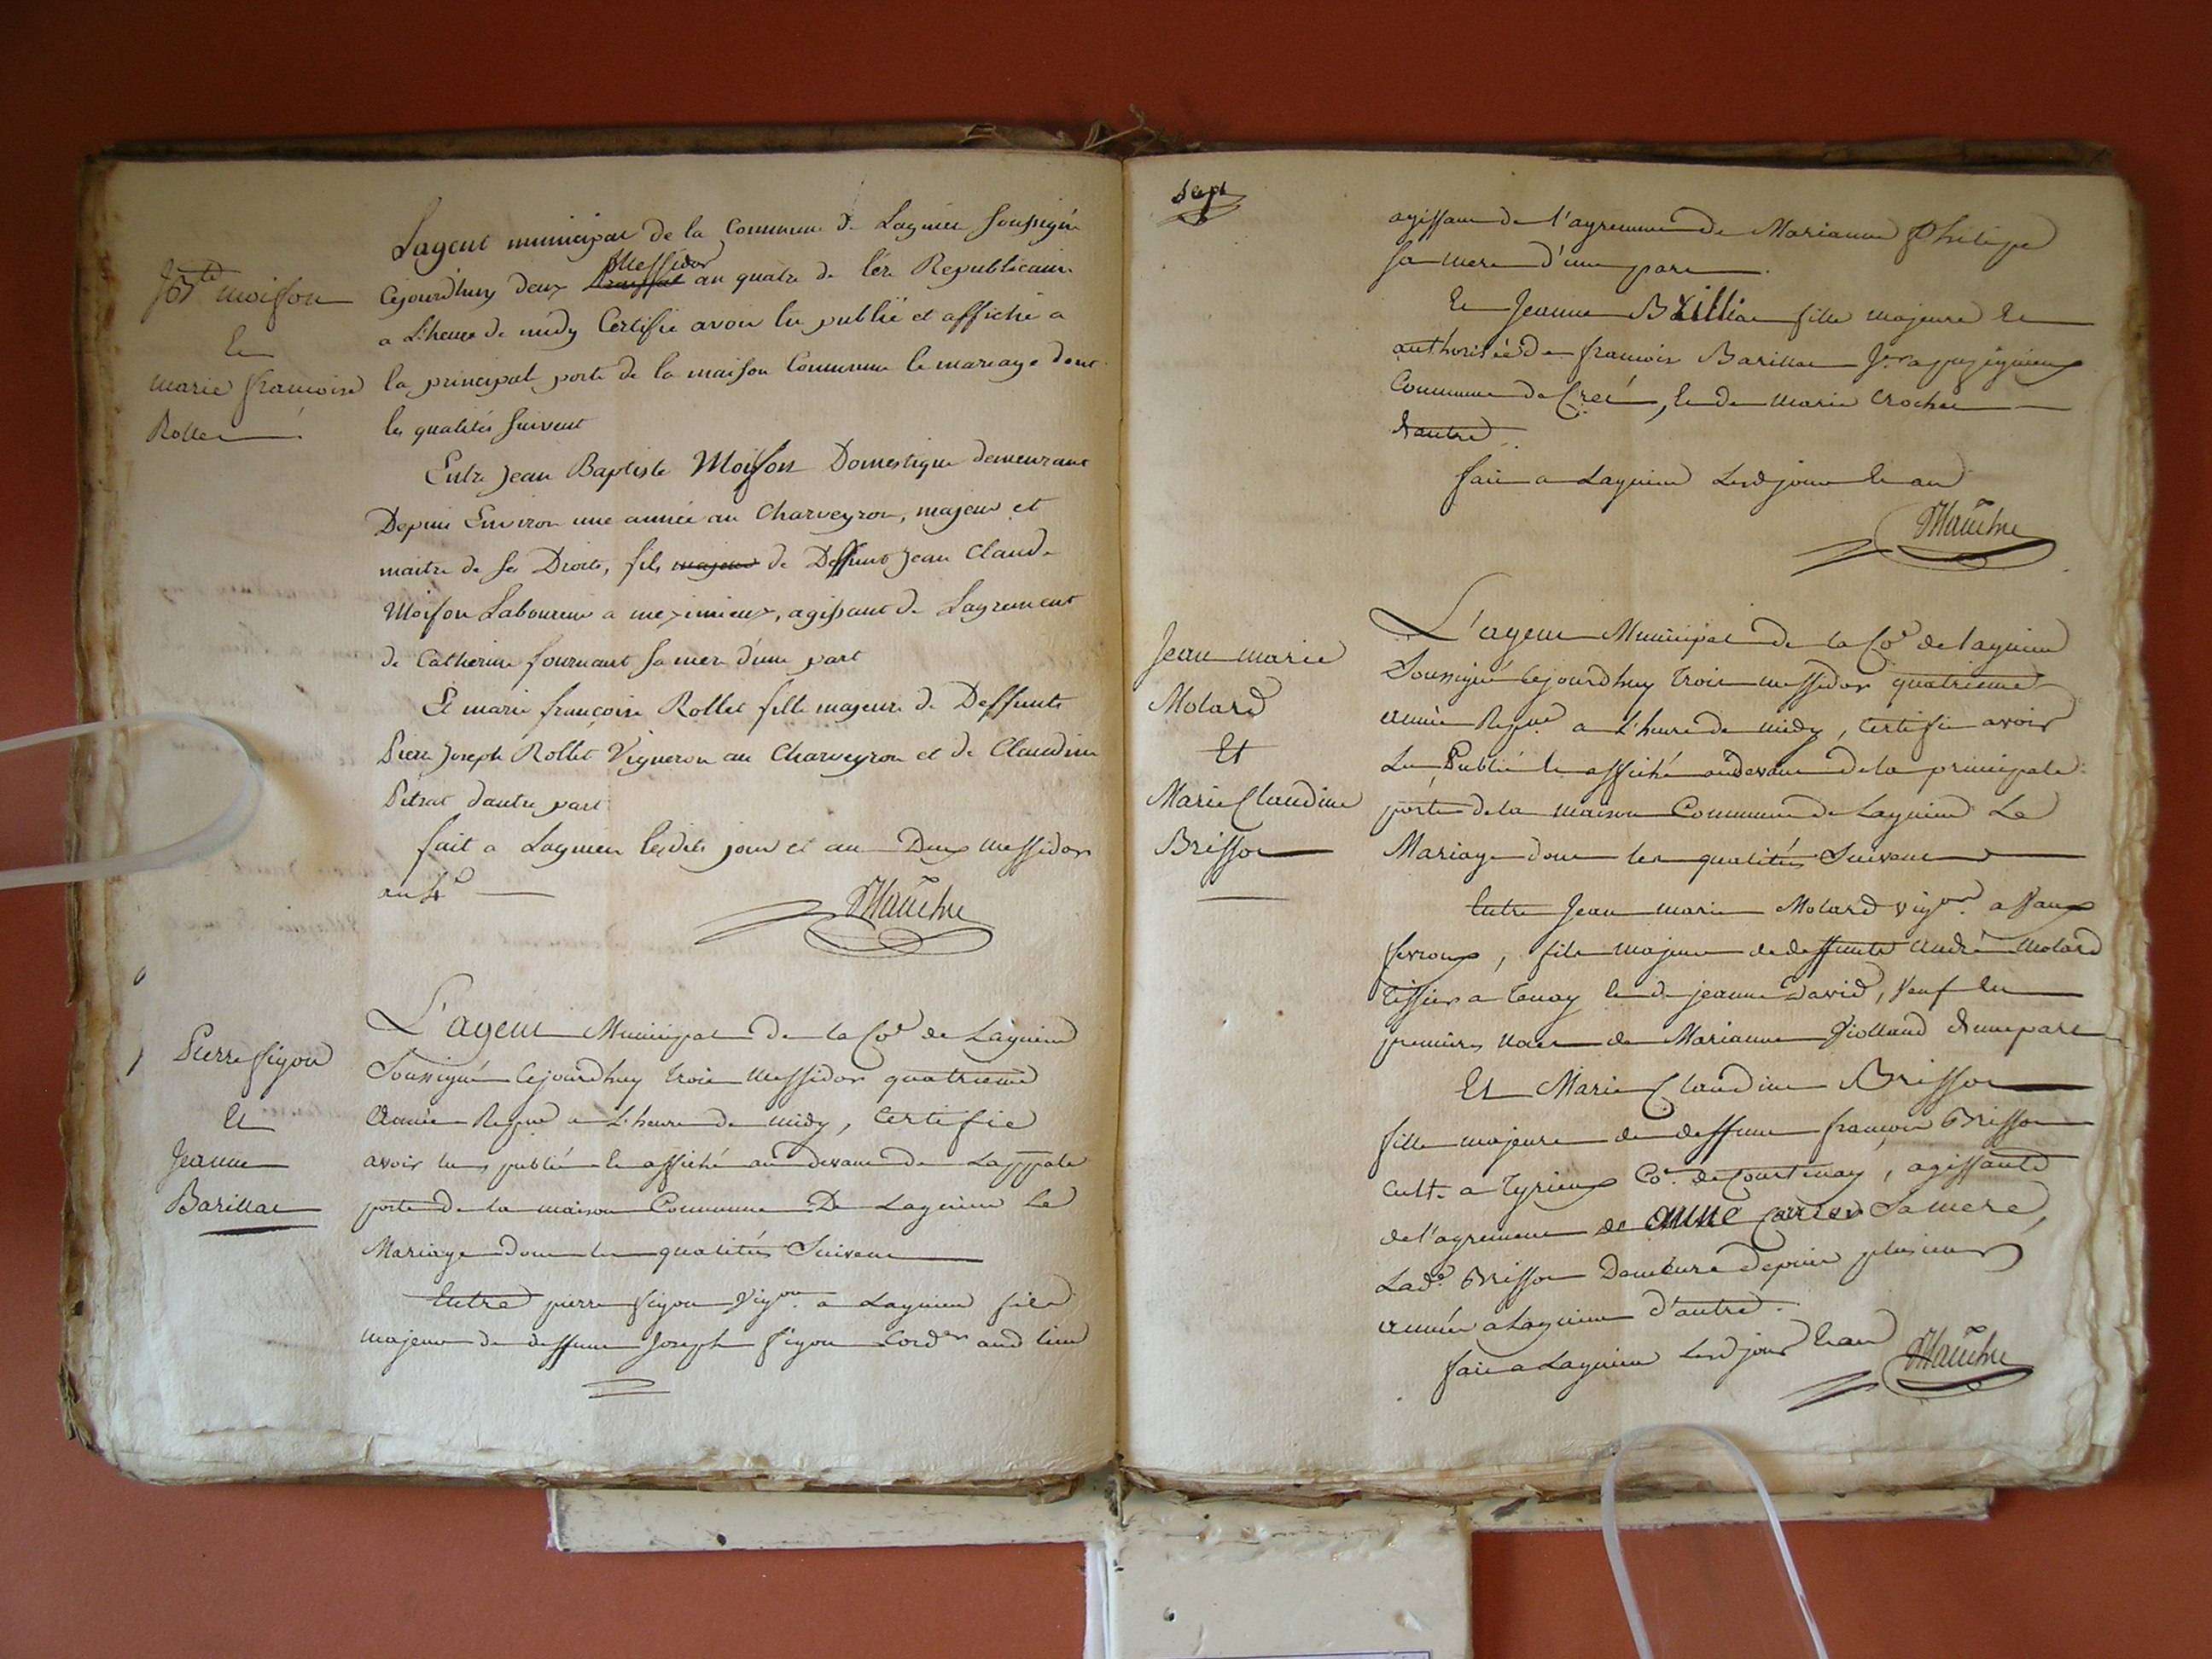 Jn Bte moison
Et
marie francoise
Rollet
Lagent municipal de la Commune de Lagnieu soussigné
Cejourd'huy deux Messidor an quatre de l'ére Republicaine
a L'heure de midy Certifie avoir lu publié et affiché a
la principale porte de la maison Commune le mariage dont
les qualités suivent
Entre Jean Baptiste Moison Domestique demeurant
Depuis Environ une année au Charveyron, majeur et
maitre de ses Droits, fils majeur de Deffunt Jean Claude
Moison Laboureur a meximieux, agissant de Lagrement
de Catherine fournant sa mere d'une part
Et marie françoise Rollet fille majeure de Deffunts
Pierre Joseph Rollet Vigneron au Charveyron et de Claudine
Pitrat d'autre part
fait a Lagnieu lesdits jour et an Deux Messidor
an 4e
Pierre figon
Et
Jeanne
Barillat
L'agent Municipal de la Co. de Lagnieu
Soussigné Cejourdhuy trois Messidor quatrieme
Année Repue a L'heure de midy, Certifie
avoir lu, publié et affiché au devant de Lapppale
porte de la maison Commune De Lagnieu Le
Mariage dont les qualités Suivent
Entre pierre figon Vigon a Lagnieu fils
majeur de deffunt Joseph figon Corder aud lieu
sept
agissant de l'agrement de Marianne Philipe
sa mere d'une part.
Et Jeanne fille majeure et
authorisée de francois Barillat
Commune de, et de Marie Crochet
d'autre.
fait a Lagnieu Lesd jour et an
Jean marie
Molard
Et
Marie Claudine
Brisson
L'agent Municipal de la Co. de lagnieu
Soussigné Cejourdhuy trois messidor quatrieme
année Repue a L'heure de midy, Certifie avoir
Lu Publié et affiché au devant de la principale
porte de la maison Commune de Lagnieu Le
Mariage dont les qualités Suivent
Entre Jean marie Molard vigon a
, fils majeur de deffunt André Molard
Tissier a Tenay et de jeanne David, Veuf en
premieres noces de Marianne d'une part
Et Marie Claudine Brisson
fille majeure de deffunt françois Brisson
Cult. a Tyrieux Co. de Courtenay, agissante
de l'agrement de anne Sa mere,
Lade. Brisson Demeure depuis plusieurs
année a Lagnieu d'autre.
fait a Lagnieu Lesd jour et an